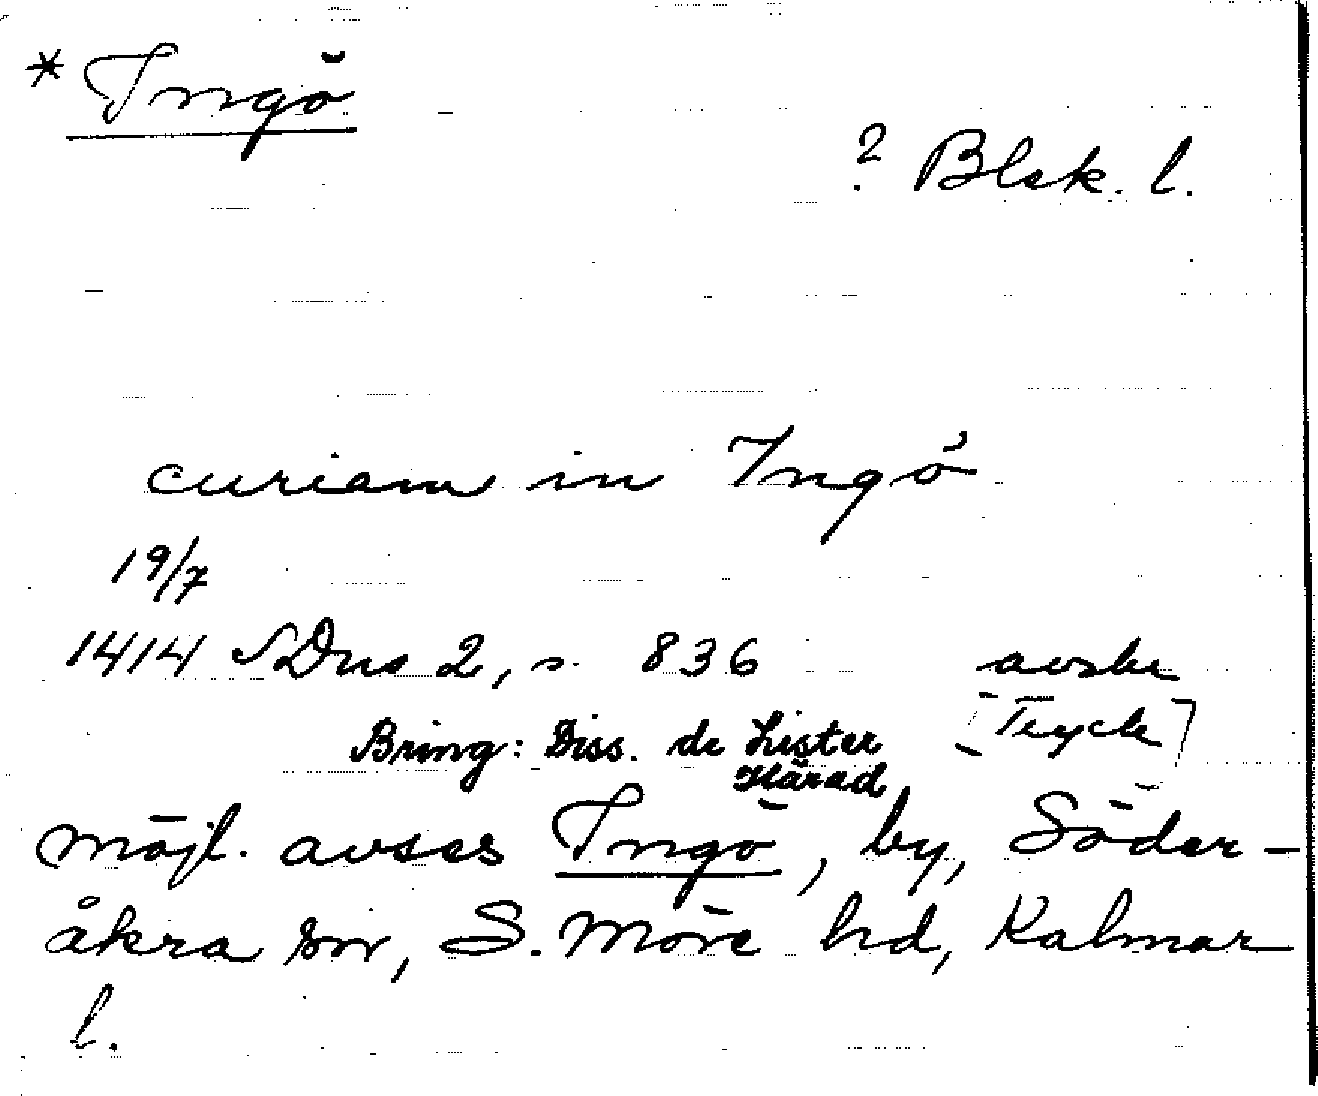 * Ingö
? Blek. l.
curiam in Ingö
19/7
1414 SDns 2, s. 836 avskr
[Tryck]
Bring: Diss. de Lister
Härad
möjl. avses Ingö, by, Söder-
åkra sn, S. Möre hd, Kalmar
l.